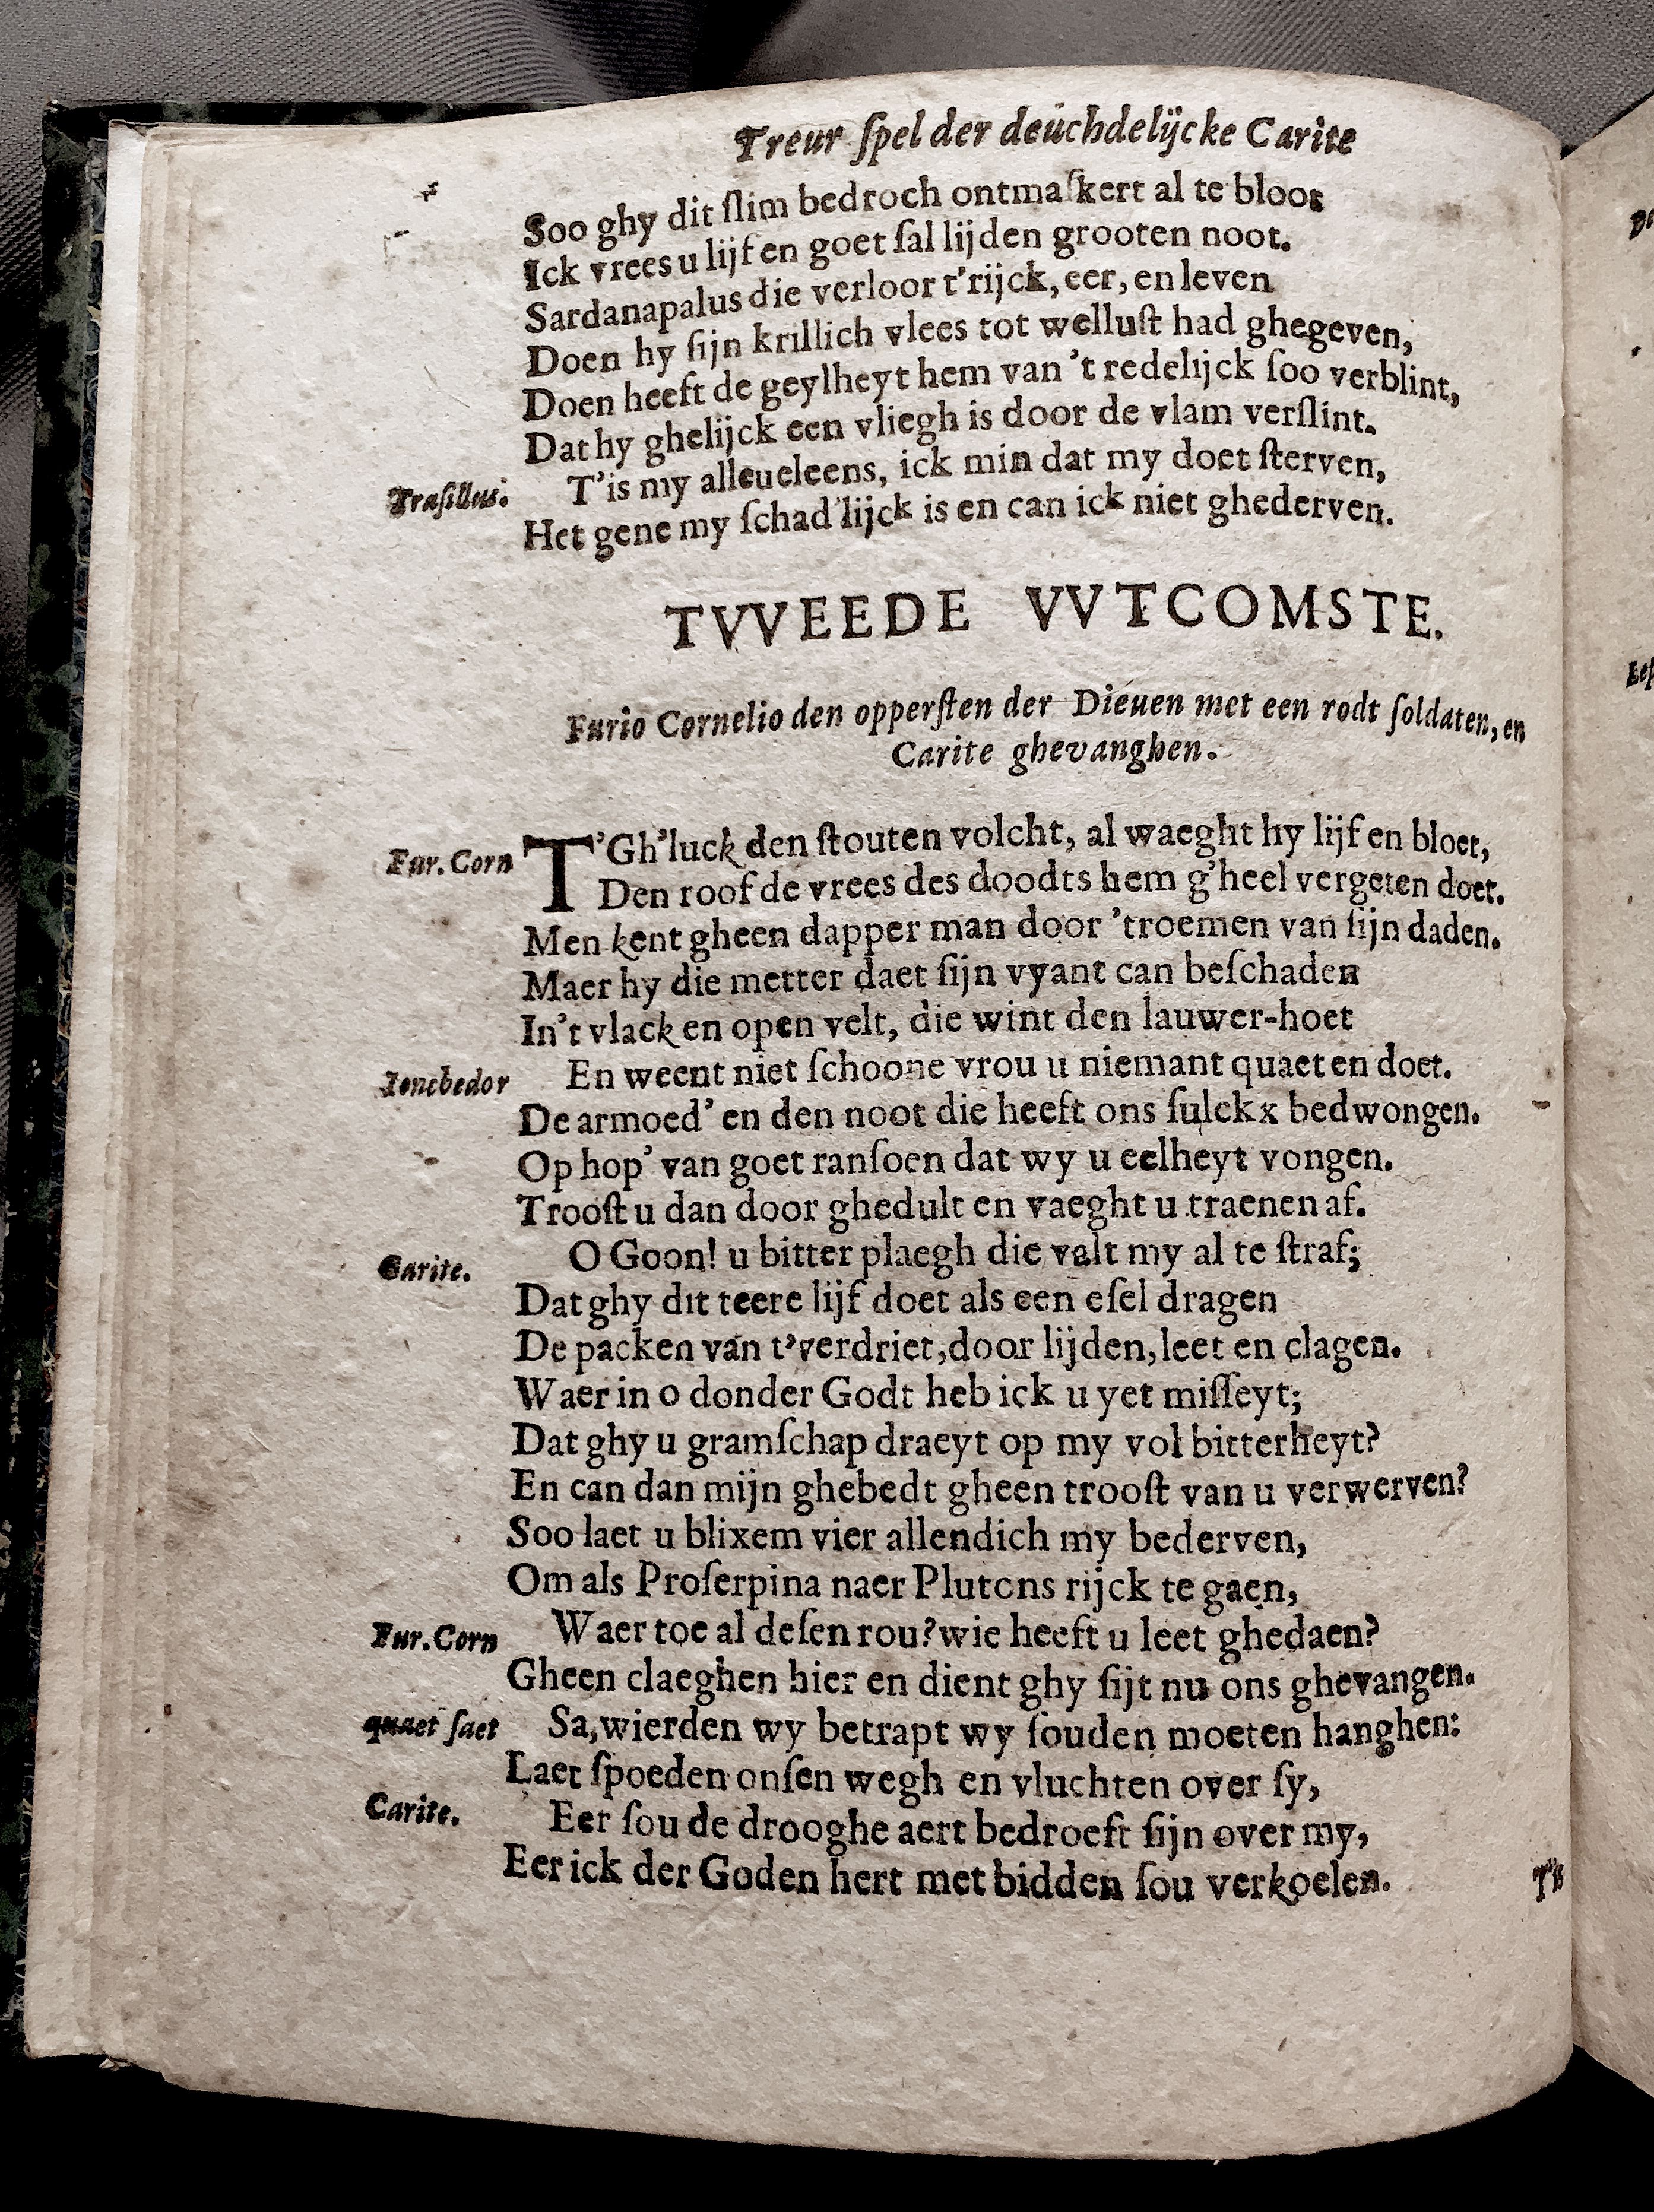 Treur ſpel der deuchdelijcke Carite
Soo ghy dit ſlim bedroch ontmaſkert al te bloot
Ick vrees u lijf en goet ſal lijden grooten noot.
Sardanapalus die verloor t'rijck, eer, en leven
Doen hy ſijn krillich vlees tot welluſt had ghegeven,
Doen heeft de geylheyt hem van 't redelijck ſoo verblint,
Dat hy ghelijck een vliegh is door de vlam verſlint.
Traſillus. T'is my alleueleens, ick min dat my doet ſterven,
Het gene my ſchad'lijck is en can ick niet ghederven.
TVVEEDE VVTCOMSTE.
Furio Cornelio den opperſten der Dieuen met een rodt ſoldaten, en
Carite ghevanghen.
Fur. Corn T'Gh'luck den ſtouten volcht, al waeght hy lijf en bloet,
Den roof de vrees des doodts hem g'heel vergeten doet.
Men kent gheen dapper man door 'troemen van ſijn daden.
Maer hy die metter daet ſijn vyant can beſchaden
In't vlack en open velt, die wint den lauwer-hoet
Ionebedor En weent niet ſchoone vrou u niemant quaet en doet.
De armoed' en den noot die heeft ons ſulckx bedwongen.
Op hop' van goet ranſoen dat wy u eelheyt vongen.
Trooſt u dan door ghedult en vaeght u traenen af.
Carite. O Goon! u bitter plaegh die valt my al te ſtraf;
Dat ghy dit teere lijf doet als een eſel dragen
De packen van t'verdriet, door lijden, leet en clagen.
Waer in o donder Godt heb ick u yet miſſeyt;
Dat ghy u gramſchap draeyt op my vol bitterheyt?
En can dan mijn ghebedt gheen trooſt van u verwerven?
Soo laet u blixem vier allendich my bederven,
Om als Proſerpina naer Plutons rijck te gaen,
Fur. Corn Waer toe al deſen rou? wie heeft u leet ghedaen?
Gheen claeghen hier en dient ghy ſijt nu ons ghevangen.
quaet ſaet Sa, wierden wy betrapt wy ſouden moeten hanghen:
Laet ſpoeden onſen wegh en vluchten over ſy,
Carite. Eer ſou de drooghe aert bedroeft ſijn over my,
Eer ick der Goden hert met bidden ſou verkoelen.